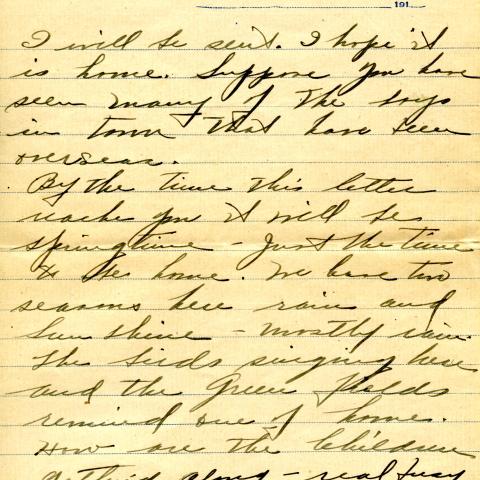 191
I will be sent. I hope it
is home. Suppose you have
seen many of the boys
in town that have been
overseas.
By the time this letter
reaches you it will be
springtime - Just the time
to be home. We have two
seasons here rain and
Sunshine - mostly rain.
The birds singing here
and the Green fields
remind one of home.
How are the Children
getting along - real busy